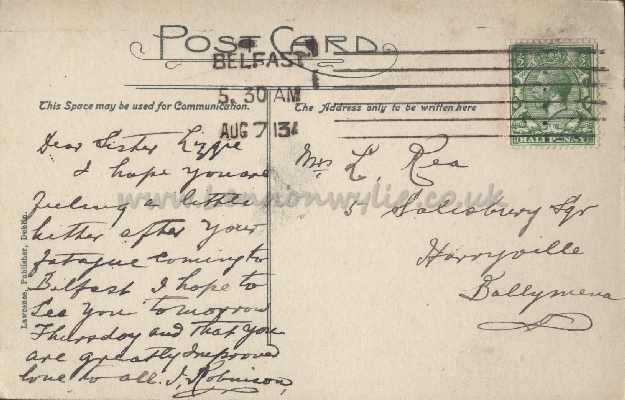 POST CARD
BELFAST
5.30 AM
AUG 7 13
HALFPENNY
This Space may be used for Communication.
The Address only to be written here
Dear Sister Lizzie
I hope you are
feeling a little
better after your
fatague coming to
Belfast I hope to
see you tomorrow
Thursday and that you
are greatly Improved
love to all. J. Robinson,
Mrs L. Rea
5 Salisbury Sqr
Harryville
Ballymena
Lawrence, Publisher, Dublin.